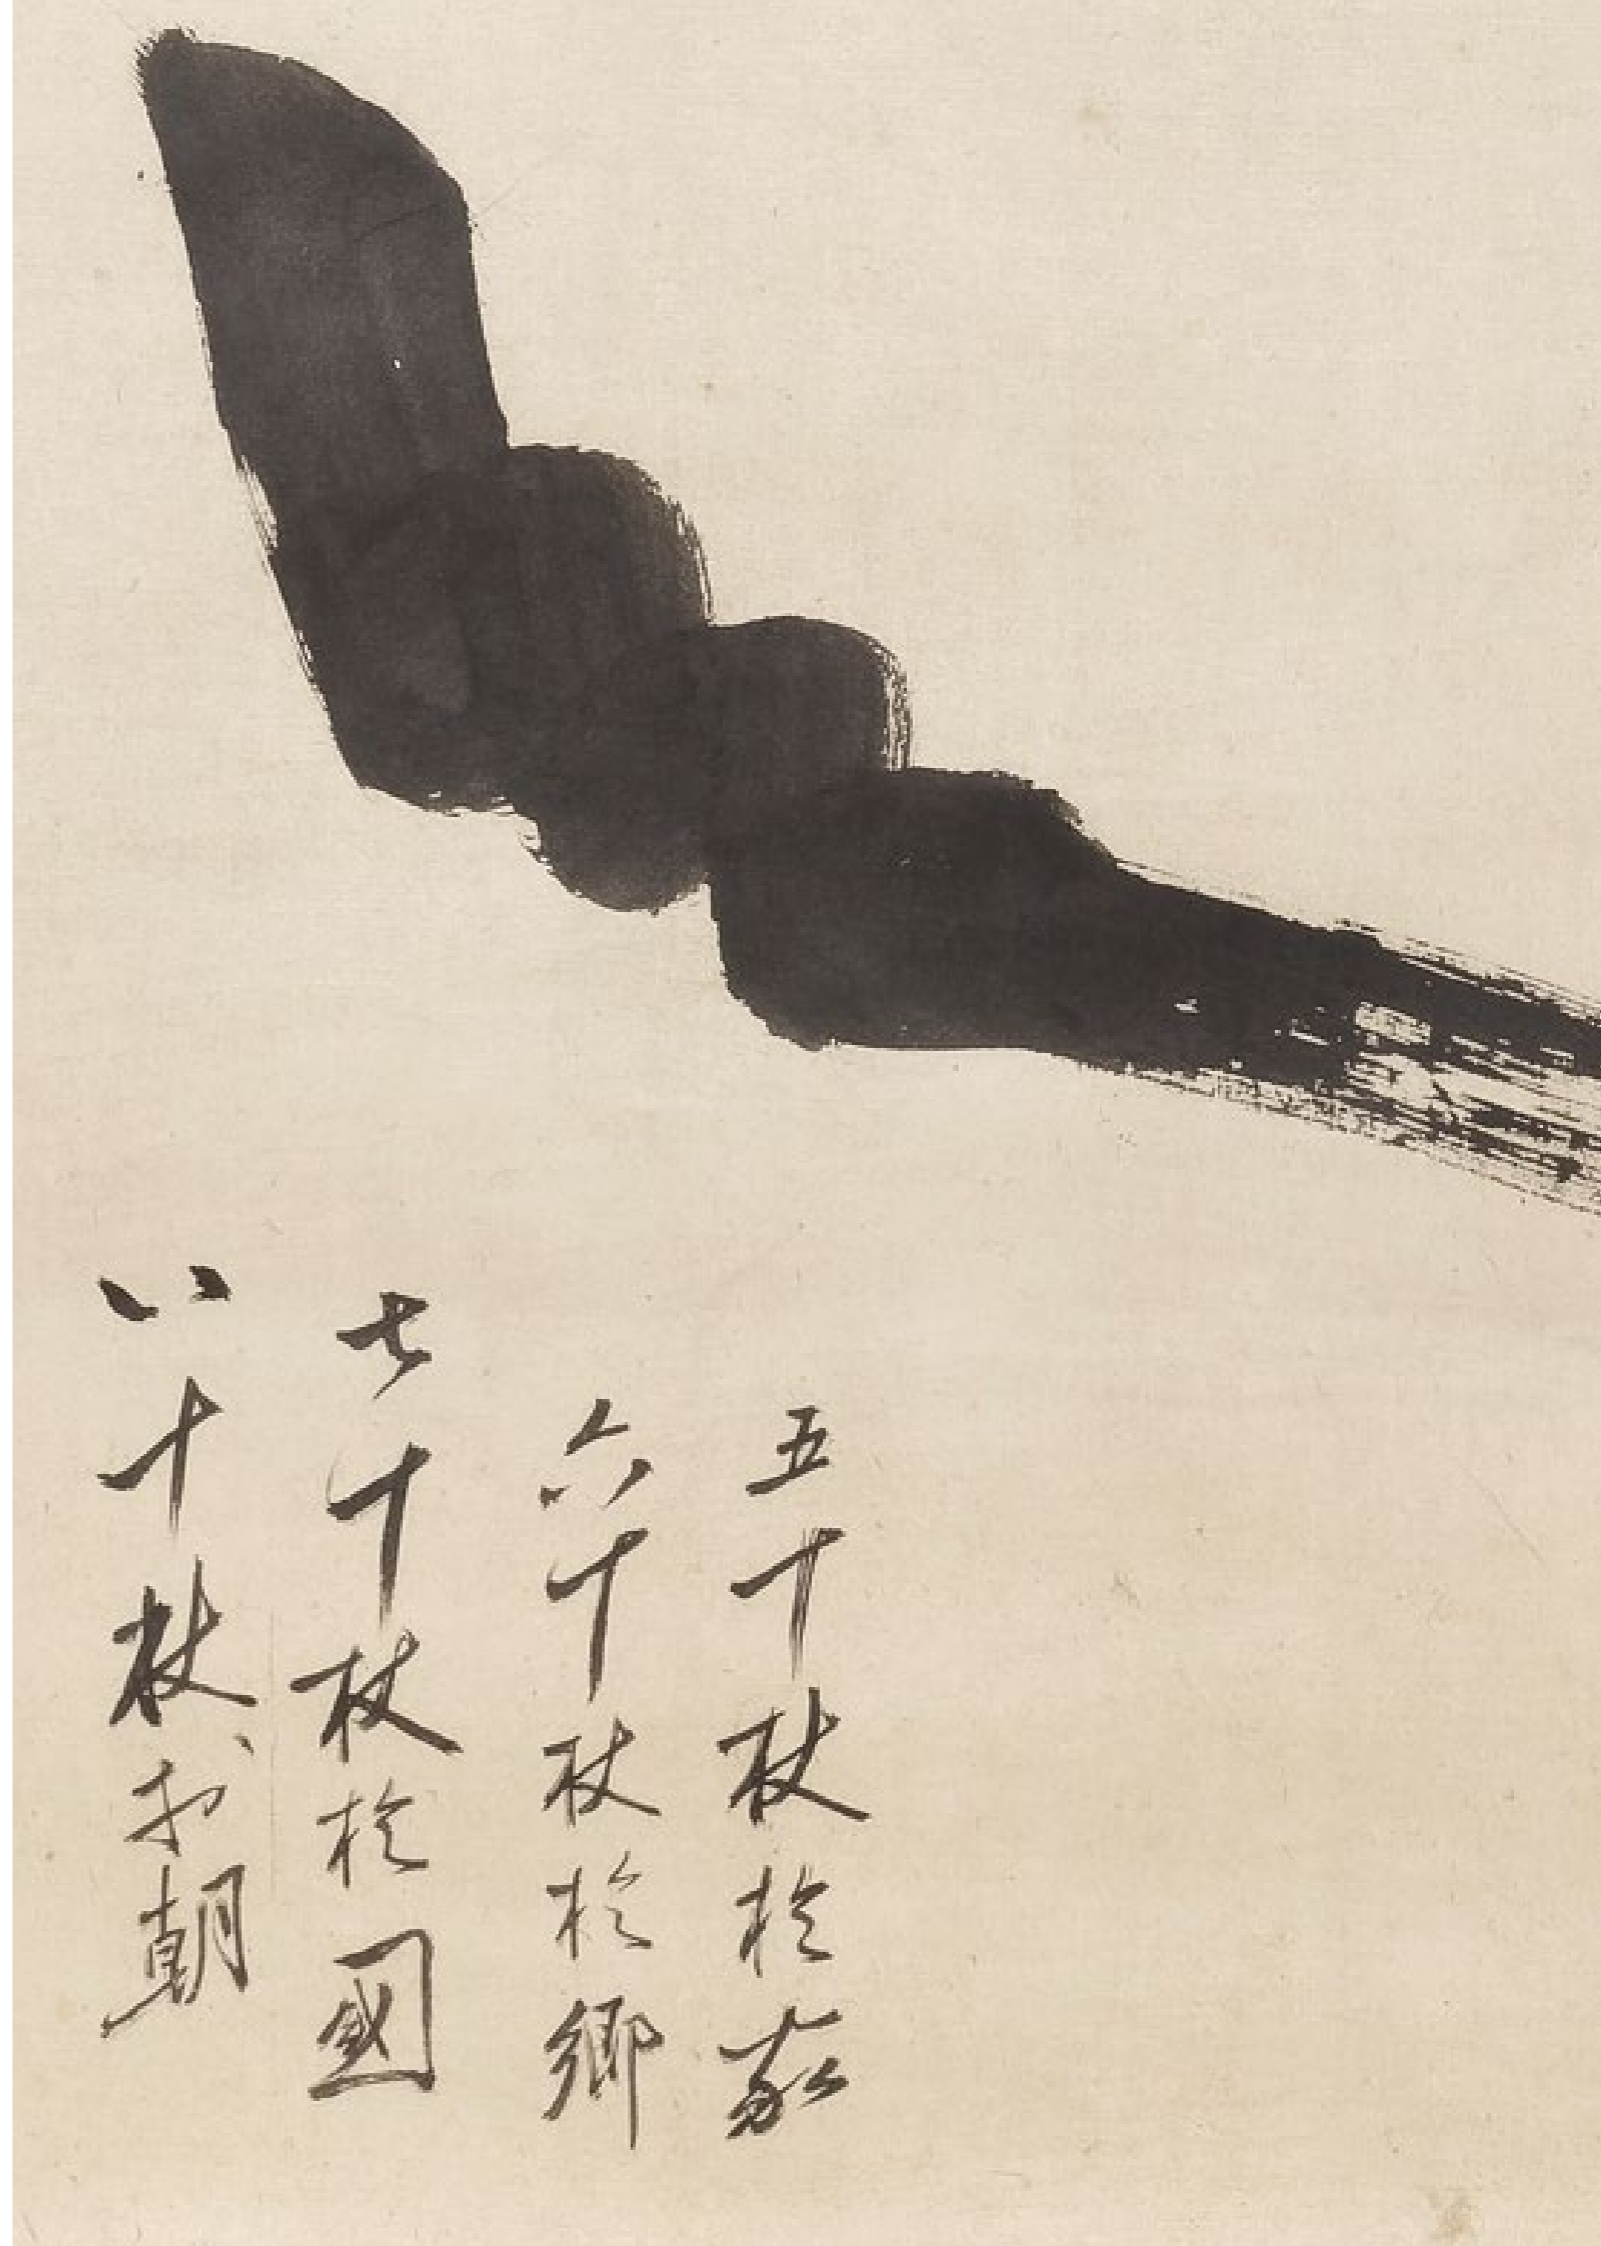 五十杖於家
六十杖於鄉
七十杖於國
八十杖於朝